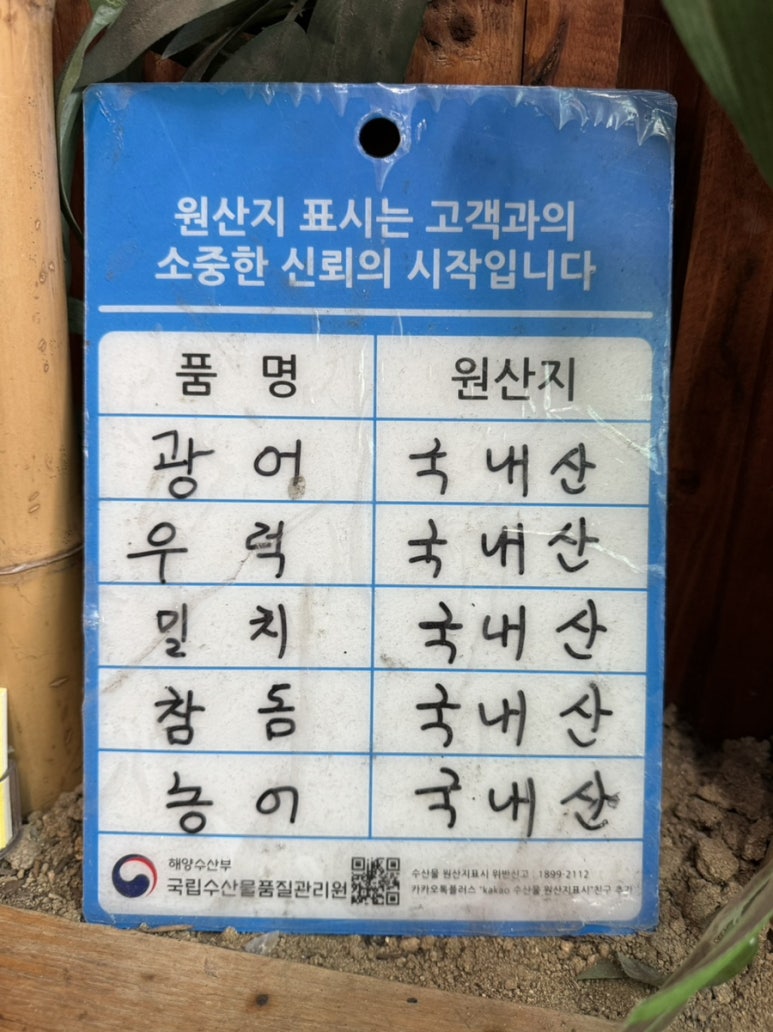 원산지 표시는 고객과의
소중한 신뢰의 시작입니다
품 명 원산지
광 어 국내산
우 럭 국내산
밀 치 국내산
참 돔 국내산
농 어 국내산
해양수산부
국립수산물품질관리원
수산물 원산지표시 위반신고 : 1899-2112
카카오톡플러스 "kakao 수산물 원산지표시"친구 추가